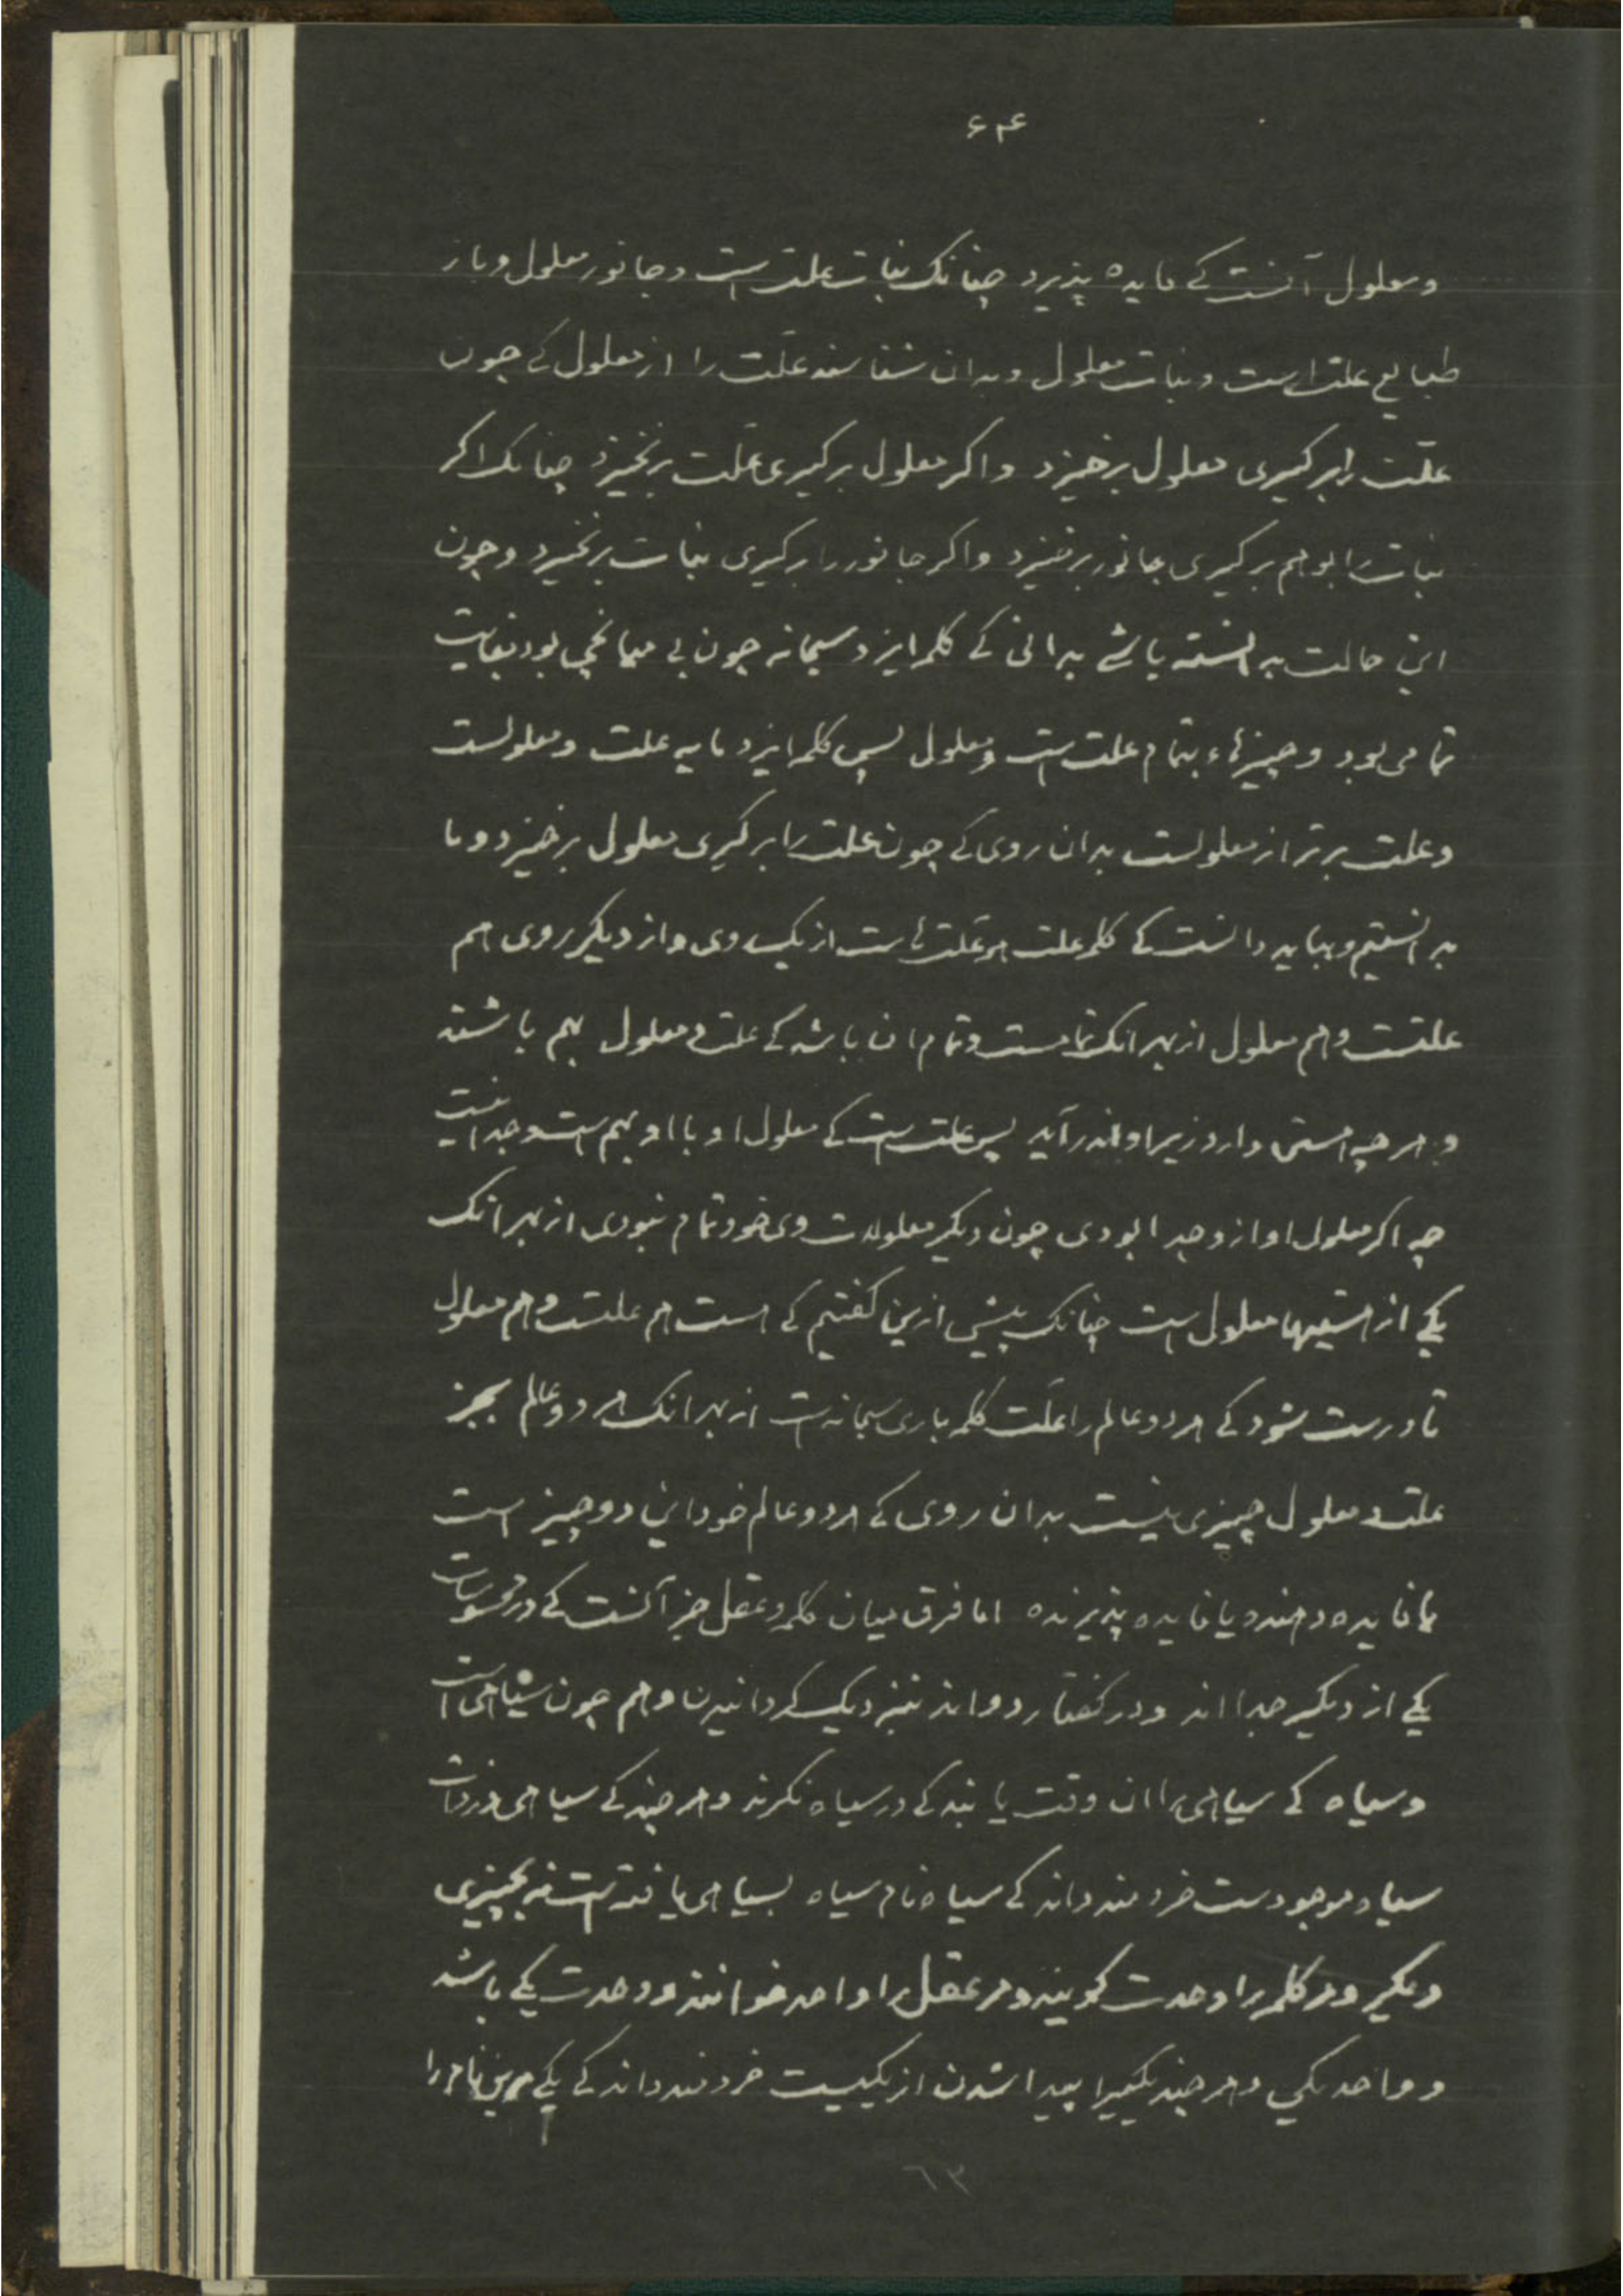 ۶۴
و معلول آنست کے فایده پذیرد چنانک نبات علت است و جانور معلول و باز
طبایع علت است و نبات معلول و بدان شناسند علّت را از معلول کے چون
علّت را برگیری معلول برخیزد و اکر معلول برگیری علّت برنخیزد چنانک اکر
نبات را بوهم برگیری جانور برخیزد و اکر جانور را برگیری نبات برنخیزد و چون
این حالت بدانسته باشے بدانی کے کلمه ایزد سبحانه چون بے میانجی بود بغایت
تمامی بود و چیزهاء بتمام علت است و معلول پس کلمه ایزد مایه علت و معلولست
و علت برتر از معلولست بدان روی کے چون علت را برگیری معلول برخیزد و ما
بدانستیم و بباید دانست کے کلمه علت هر علّت هاست از یک روی و از دیگر روی هم
علتست و هم معلول از بهر آنک تمامست و تمام ان باشد کے علت و معلول بهم باشند
و هر چه هستی دارد زیر او اندر آید پس علت است کے معلول او با او بهم است و جدا نیست
چه اکر معلول او از و جدا بودی چون دیگر معلولات وی خود تمام نبودی از بهر آنک
یکے از هستیها معلول است چنانک پیش ازین کفتیم کے هست هم علتست و هم معلول
تا درست شود کے هر دو عالم را علّت کلمه باری سبحانه است از بهر انک هر دو عالم بجز
علت و معلول چیزی نیست بدان روی کے هر دو عالم خود این دو چیز است
یا فایده دهنده یا فایده پذیرنده اما فرق میان کلمه و عقل جز آنست کے در محسوسات
یکے از دیگر جدا اند و در کفتار دو اند بنزدیک کردانیدن و هم چون سیاهی است
و سیاه کے سیاهی را ان وقت یابند کے در سیاه نکرند و هر چند کے سیاهی در ذات
سیاه موجودست خردمند داند کے سیاه نام سیاه بسیاهی یافته است نه بچیزی
دیگر و مر کلمه را وحدت کویند و مر عقل را واحد خوانند و وحدت یکے باشد
و واحد یکی و هر چند یکی را پیدا شدن از یکیست خردمند داند کے یکے مرین نام را
٦٣